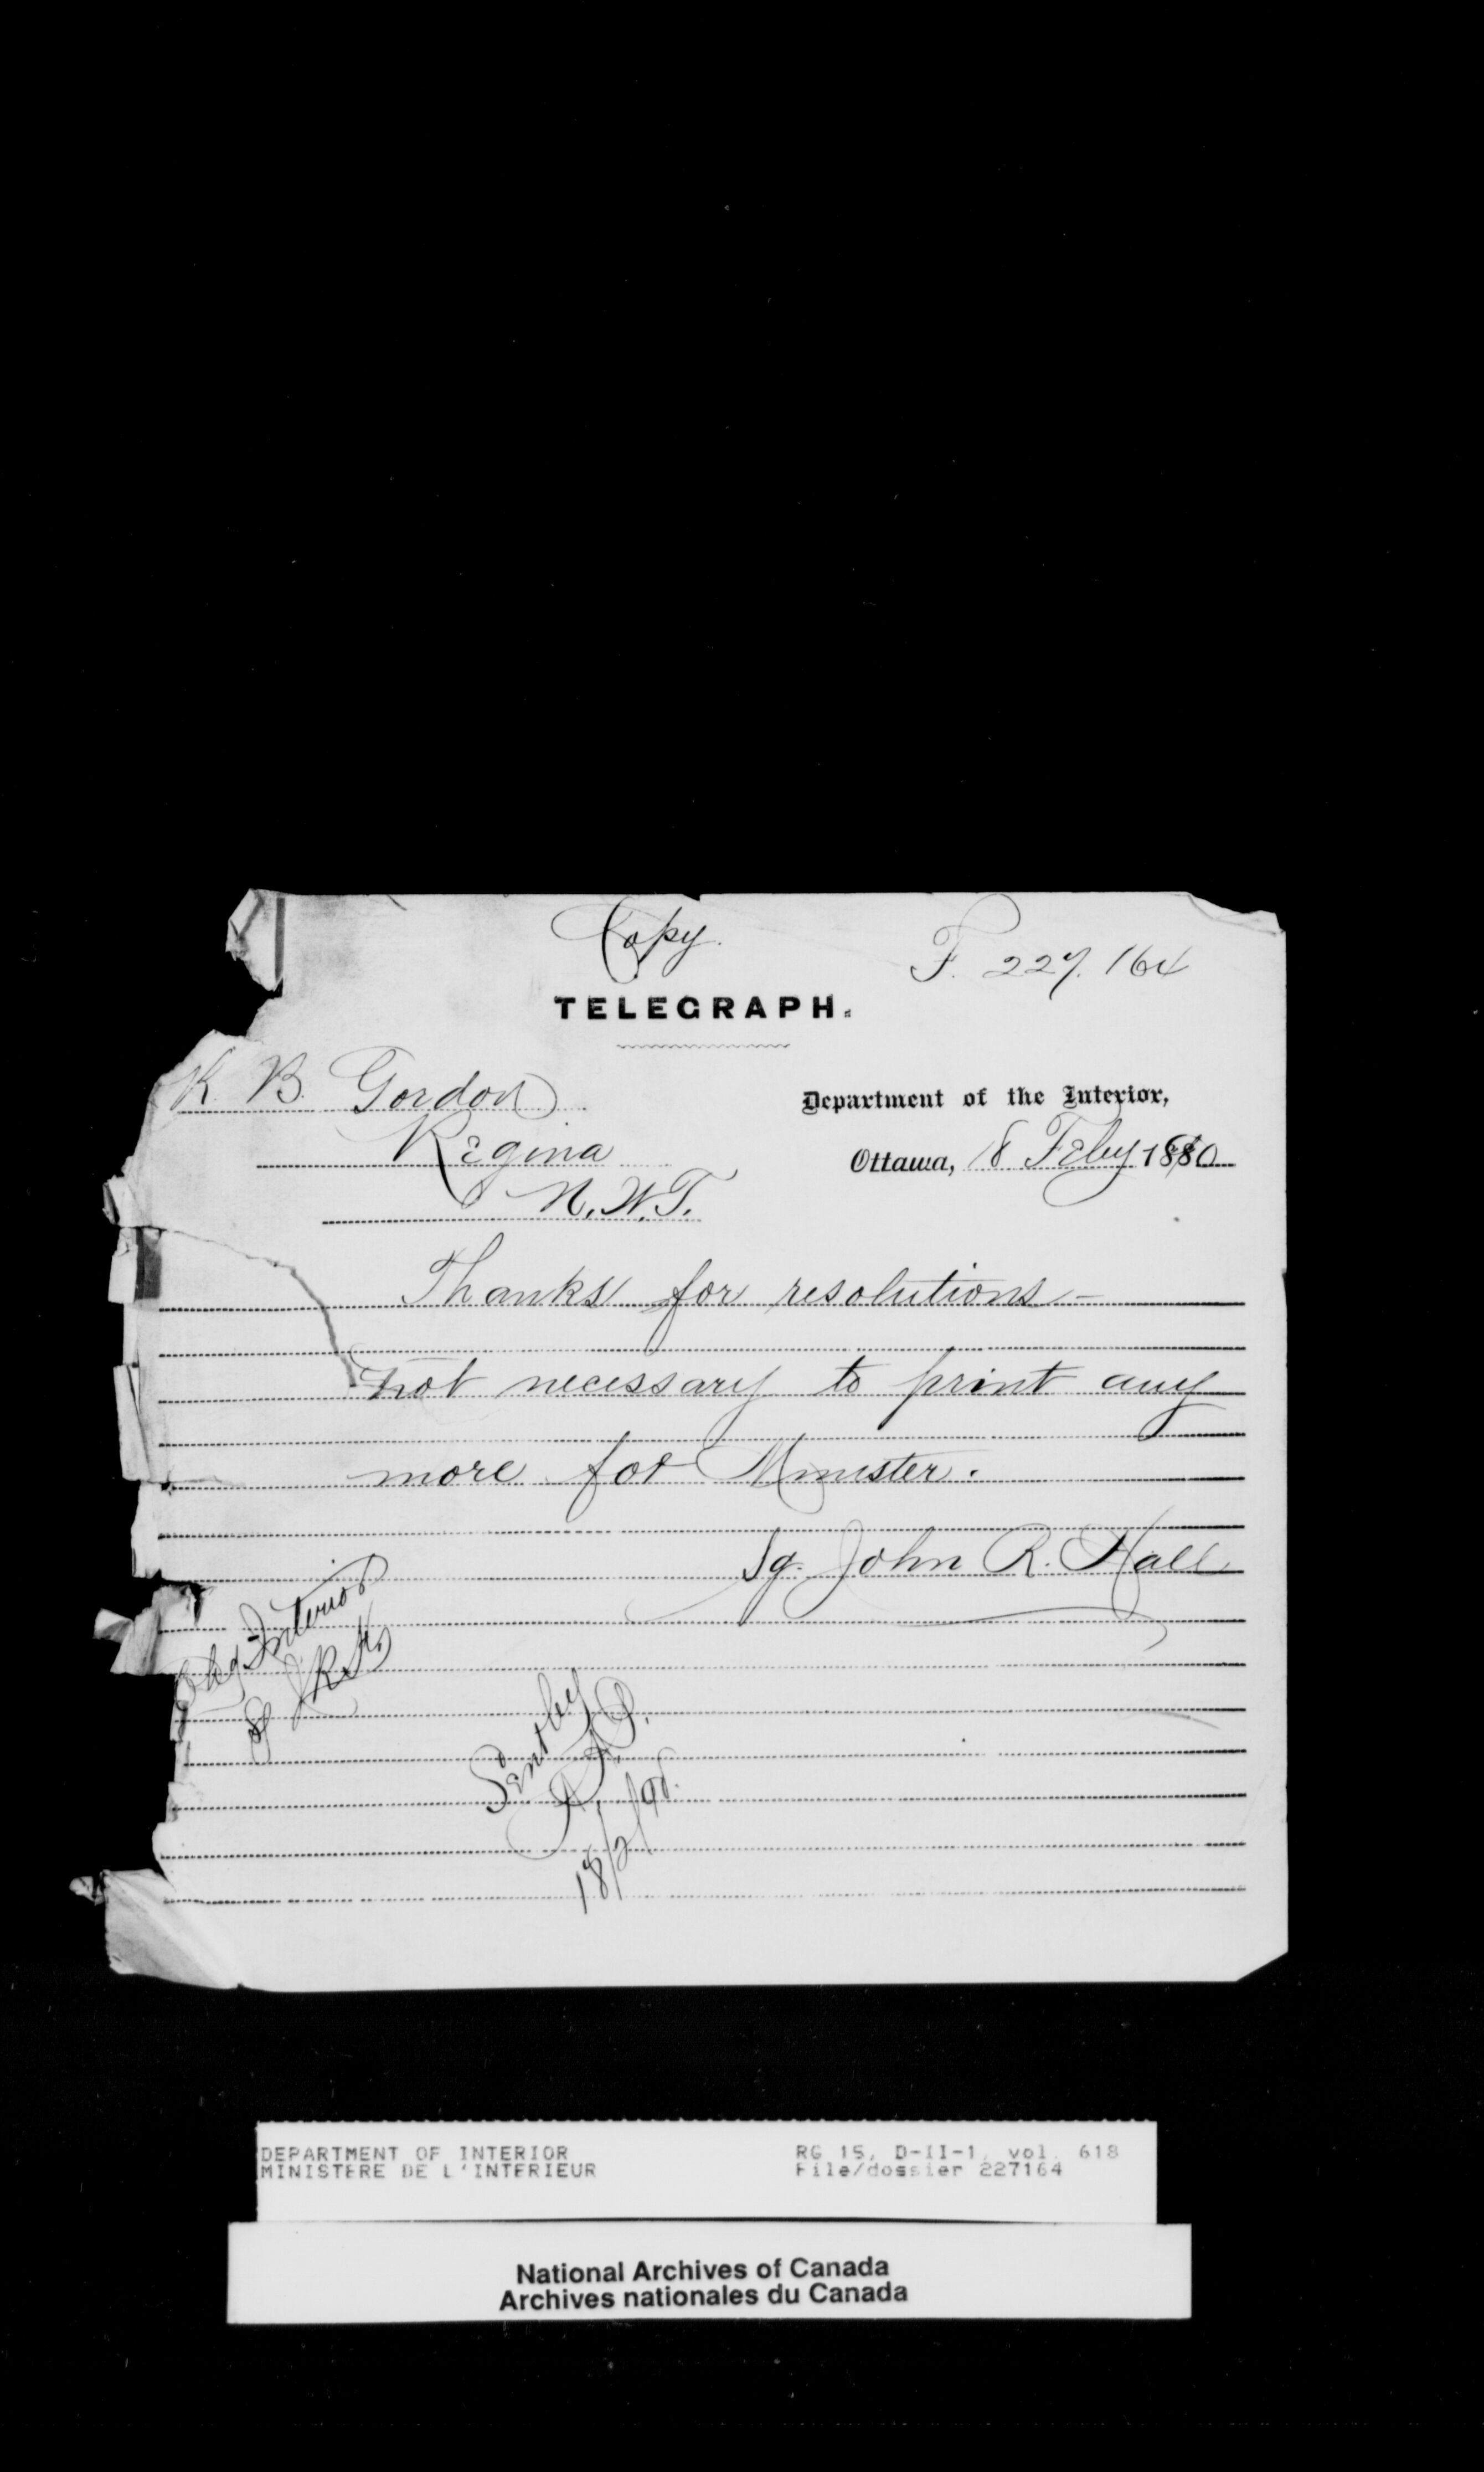 Copy.
F. 227.164
TELEGRAPH.
K. B. Gordon
Department of the Interior,
Regina
Ottawa, 18 Feby 1890
N.W.T.
Thanks for resolutions -
not necessary to print any
more for Minister.
Sg. John R. Hall
Chg Interior
J.R.H.
Sent by
18/2/90.
DEPARTMENT OF INTERIOR
MINISTERE DE L'INTERIEUR
RG 15, D-II-1, vol. 618
File/dossier 227164
National Archives of Canada
Archives nationales du Canada